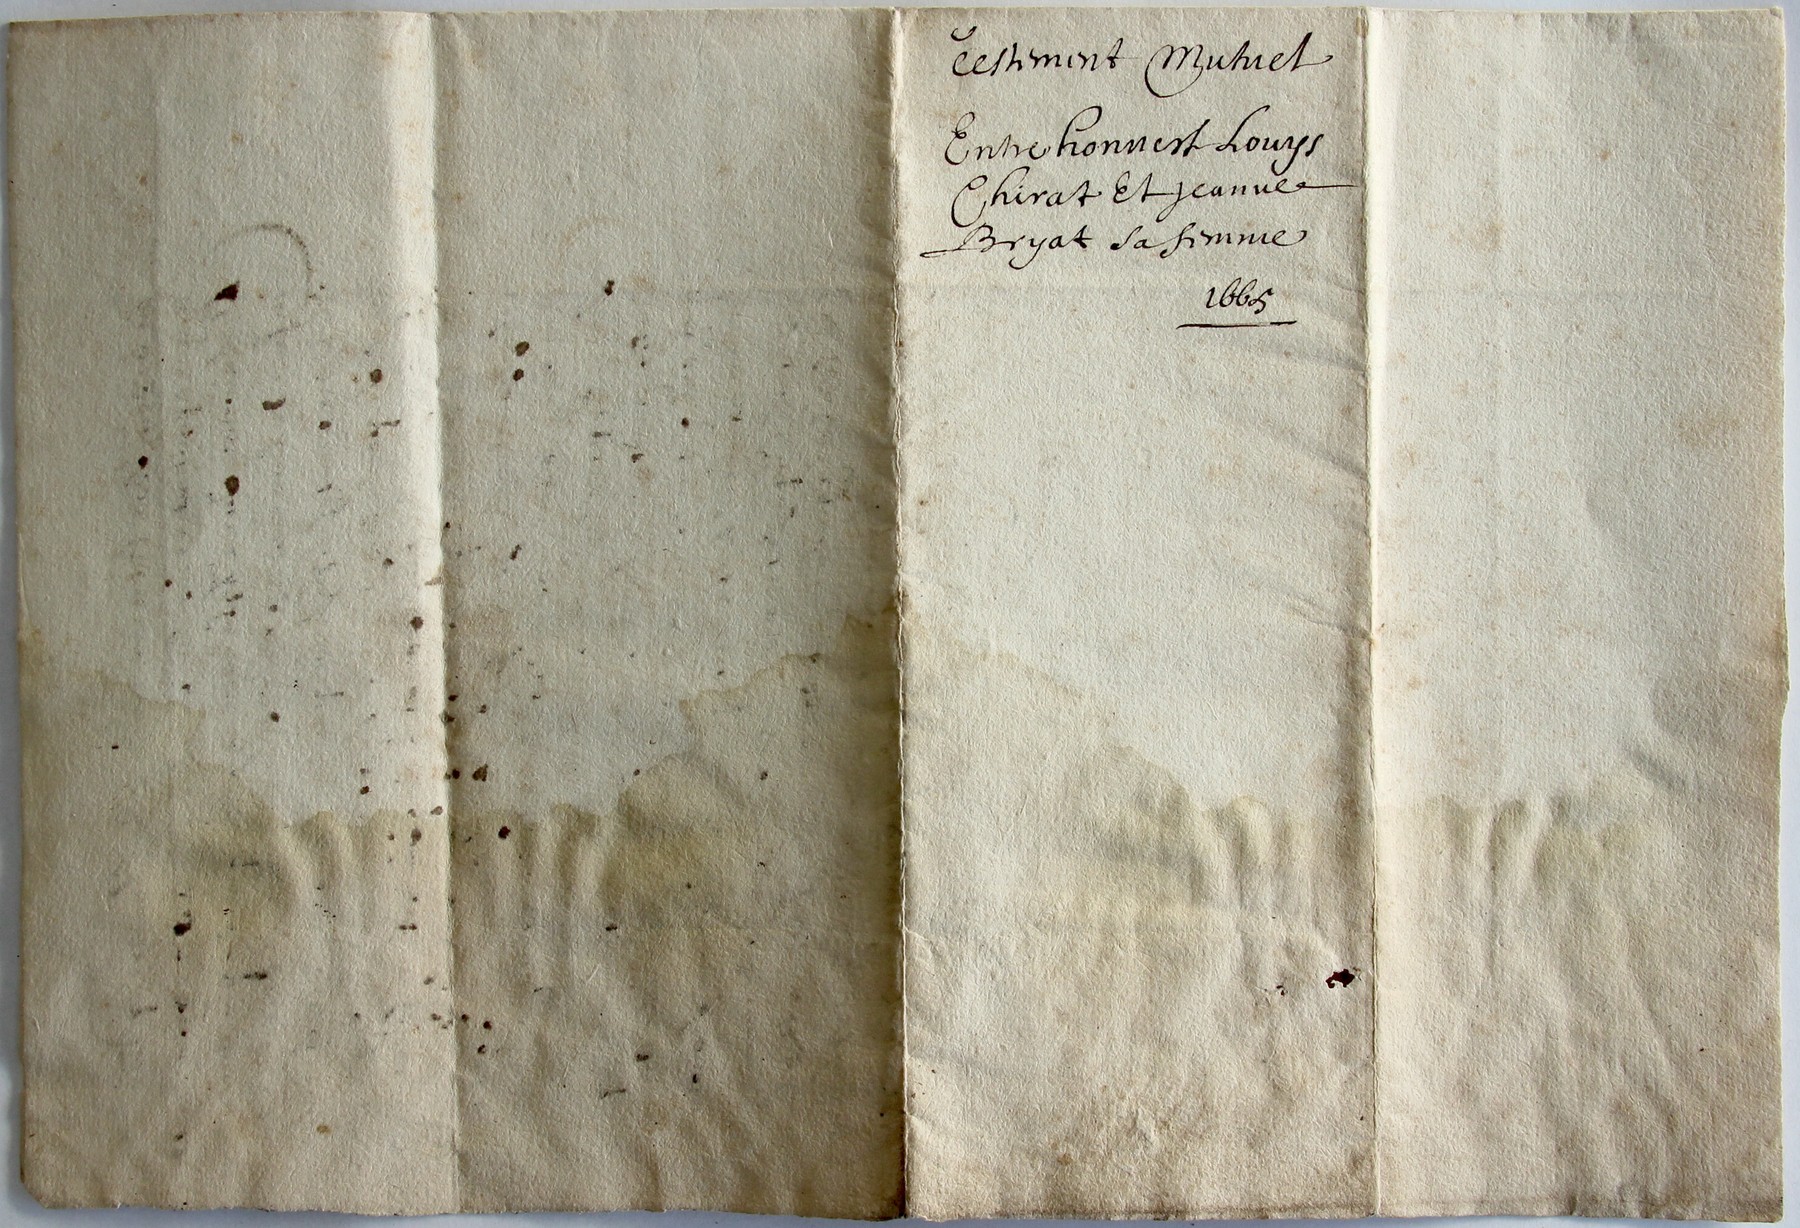 Testiment Mutuel
Entre honnest Louys
Chirat Et Jeanne
Bryat sa femme
1665